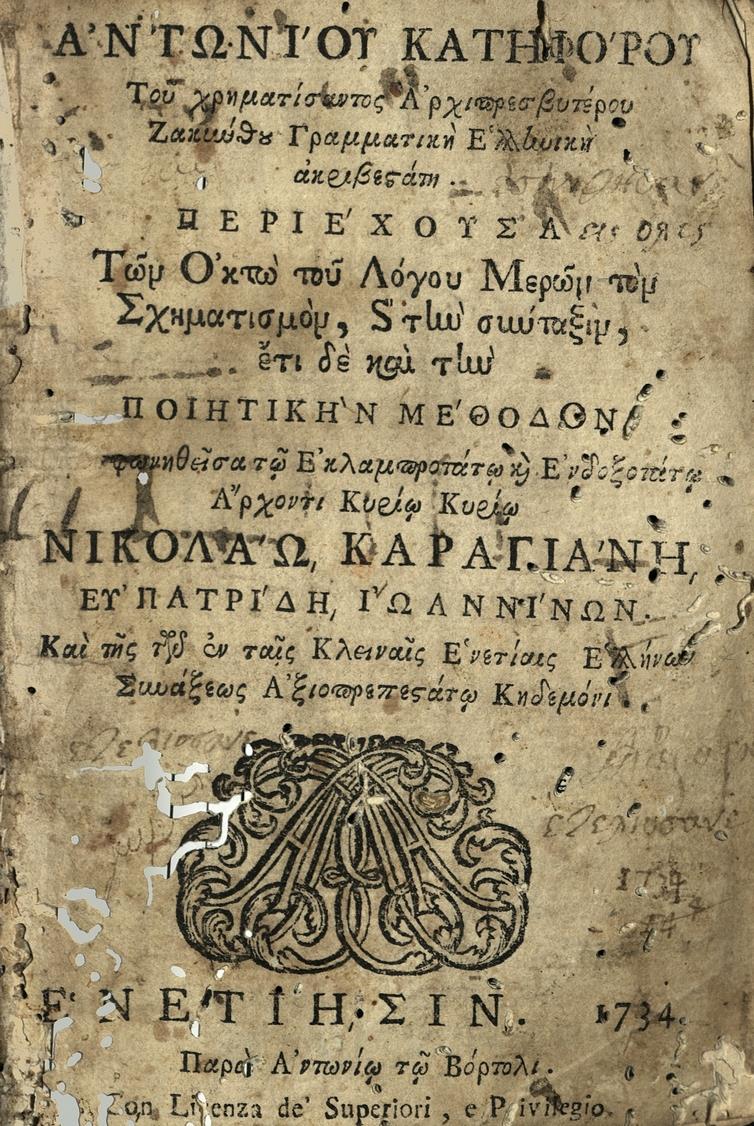 ἈΝΤΩΝΊΟΥ ΚΑΤΗΦΌΡΟΥ
Τοῦ χρηματίσαντος Ἀρχιπρεσβυτέρου
Ζακύνθου Γραμματικὴ Ἑλληνικὴ
ἀκριβεστάτη.
ΠΕΡΙΈΧΟΥΣΑ
Τῶν Ὀκτὼ τοῦ Λόγου Μερῶν τὸν
Σχηματισμὸν, & τὴν σύνταξιν,
ἔτι δὲ καὶ τὴν
ΠΟΙΗΤΙΚῊΝ ΜΈΘΟΔΟΝ
φωνηθεῖσα τῷ Ἐκλαμπροτάτῳ καὶ Ἐνδοξοτάτῳ
Ἄρχοντι Κυρίῳ Κυρίῳ
ΝΙΚΟΛΆΩ, ΚΑΡΑΓΙΆΝΗ,
ΕΥ̓ΠΑΤΡΊΔΗ, ἸΩΑΝΝΊΝΩΝ.
Καὶ τῆς τῶν ἐν ταῖς Κλειναῖς Ἑνετίαις Ἑλλήνων
Συνάξεως Ἀξιοπρεπεστάτῳ Κηδεμόνι.
εξελιοσανε
εξελιοσανε
1734
ἘΝΕΤΊΗΣΙΝ. 1734.
Παρὰ Ἀντωνίῳ τῷ Βόρτολι.
Con Licenza de' Superiori, e Privilegio.